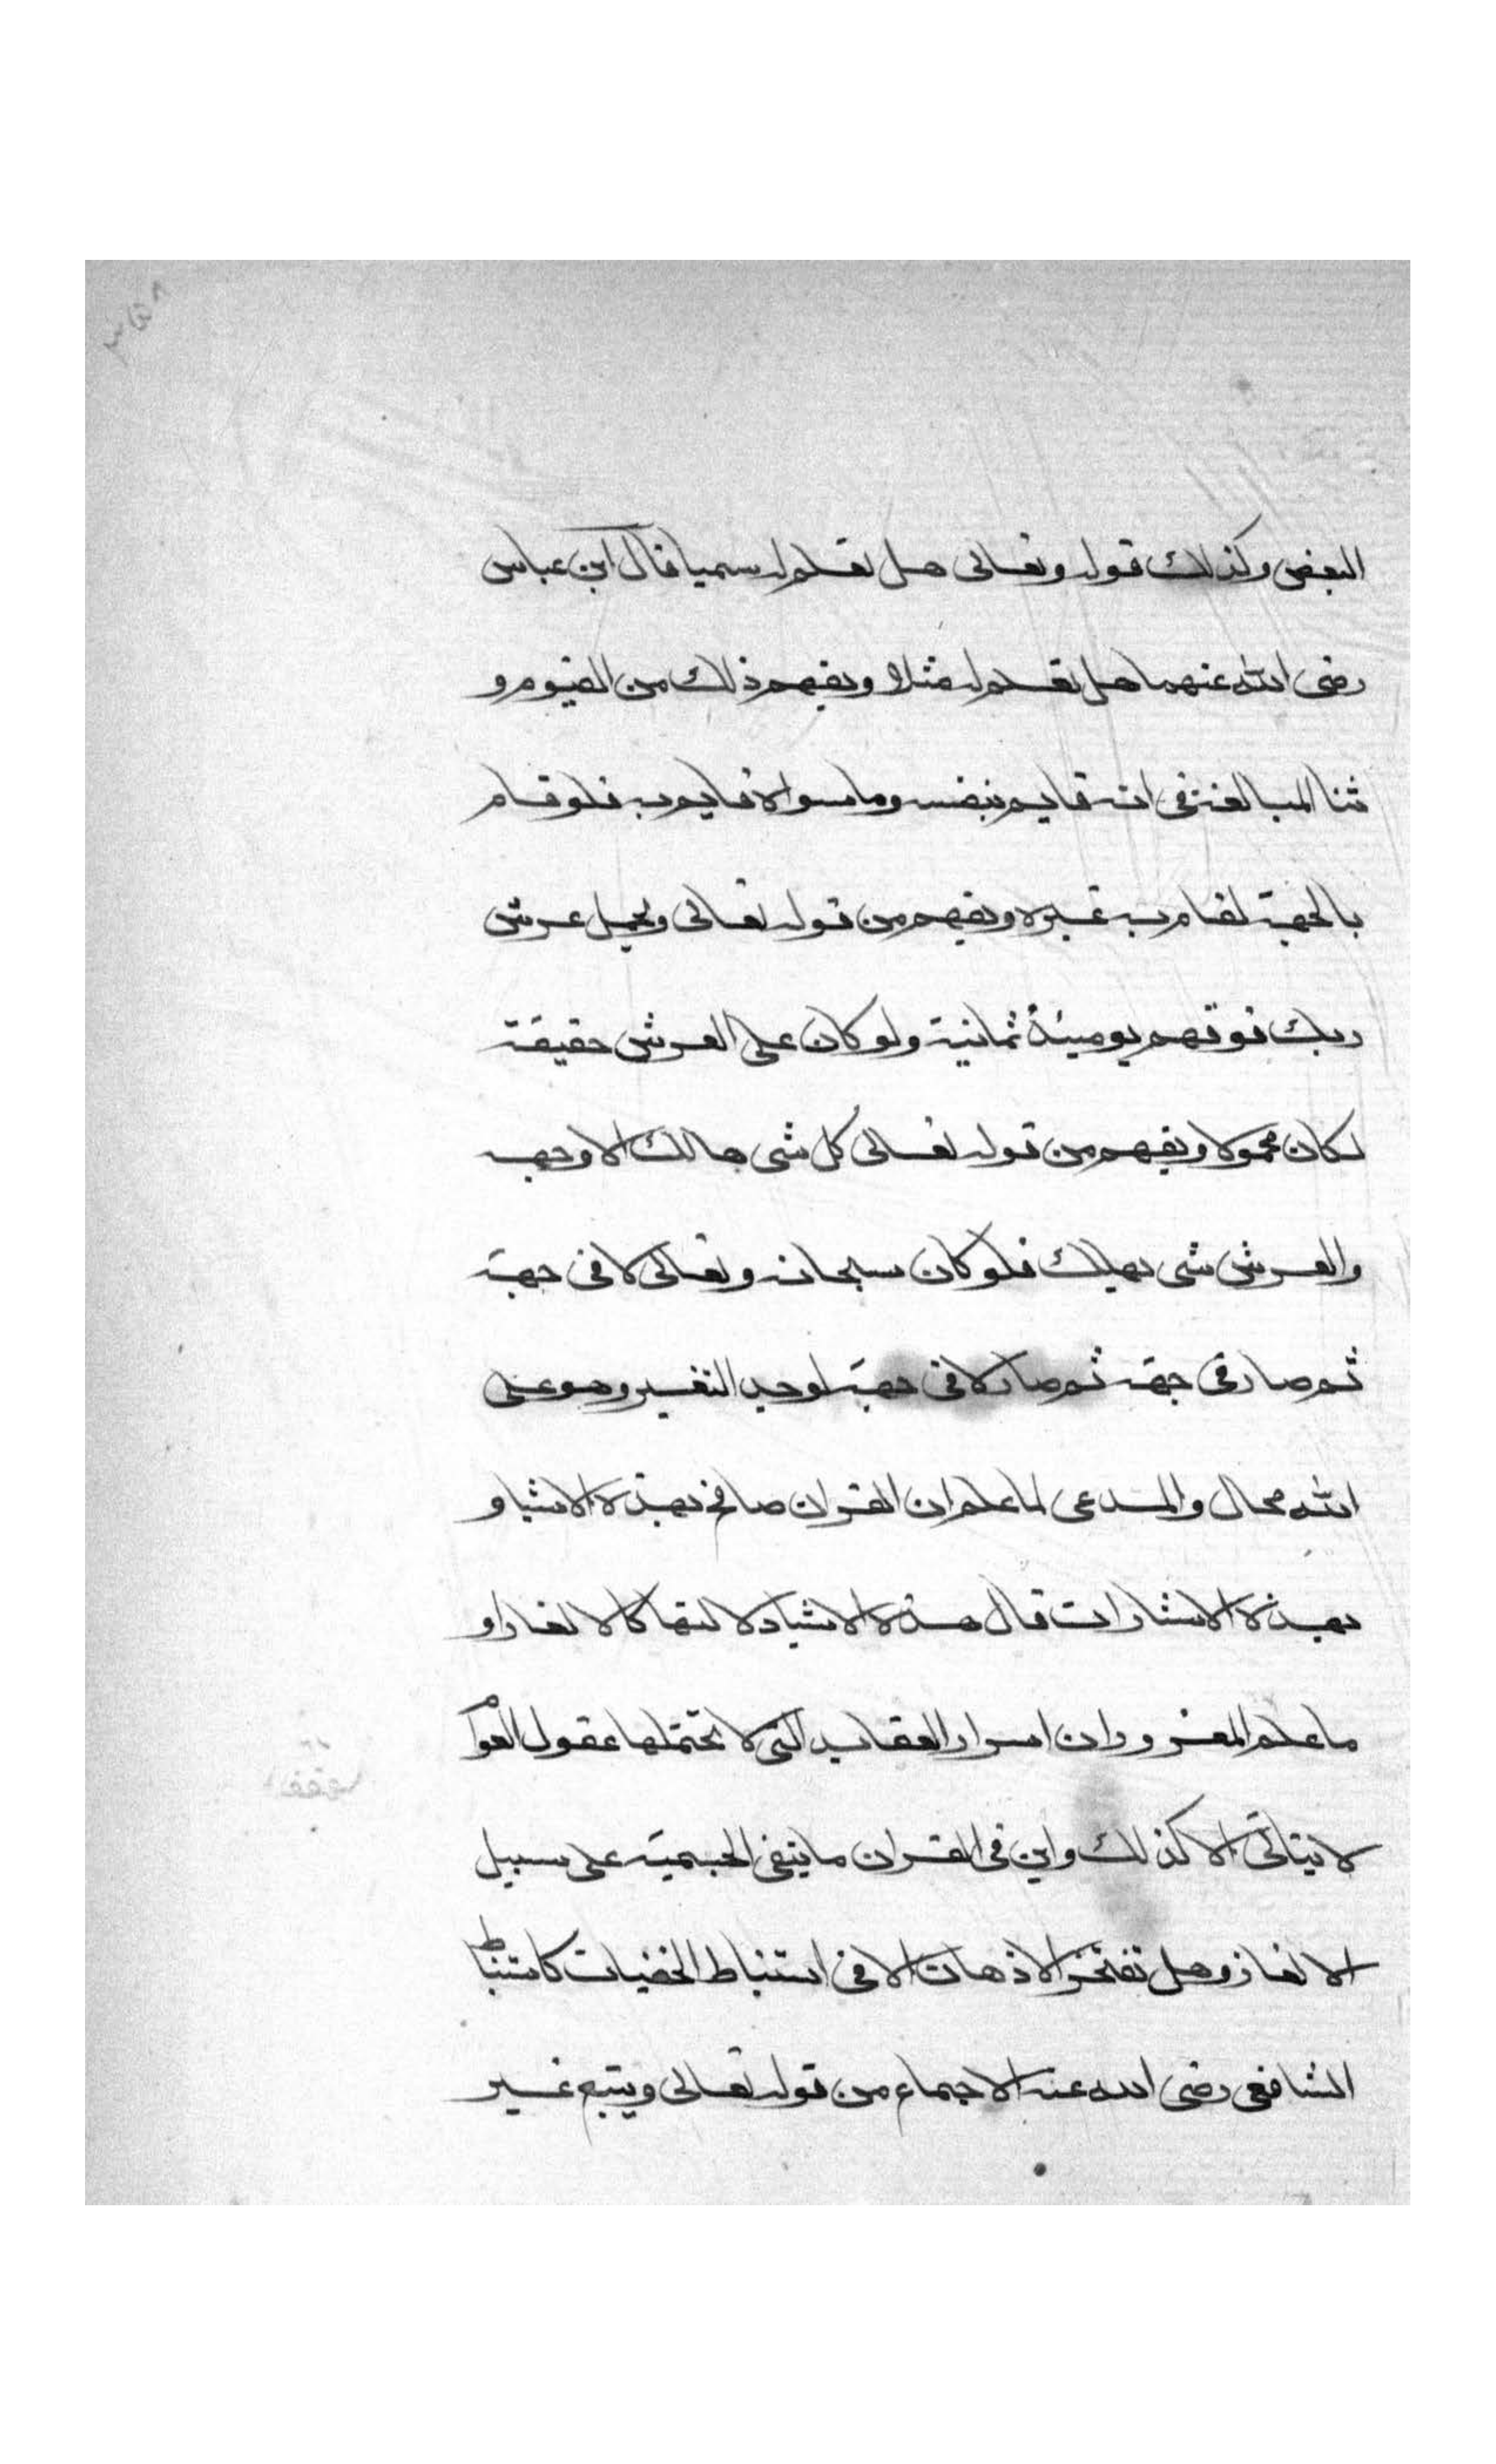 البعض وكذلك قوله وتعالى هل تعلم له سميا قال ابن عباس
رضى الله عنهما هل تعلم له مثلا ويفهم ذلك من القيوم و
ثنا المبالغة فى انه قايم بنفسه وما سواه قايم به فلو قام
بالجهة لقام به غيره ويفهم من قوله تعالى ويحمل عرش
ربك فوقهم يوميذ ثمانية ولو كان على العرش حقيقة
لكان محمولا ويفهم من قوله تعالى كل شى هالك الا وجهه
والعرش شى يهلك فلو كان سبحانه وتعالى لا فى جهة
ثم صار فى جهة ثم صار لا فى جهة لوجد التغير وهو على
الله محال والمدعى لما علم ان القران صافح بهذه الاشيا و
بهذه الاشارات قال هذه الاشيا دلالتها كالالغاز او
ما علم المغرور ان اسرار العقايد التى لا تحتملها عقول العوام
لا يتاتى الا كذلك واين فى القران ما ينفى الجسمية على سبيل
الالغاز وهل تفتخر الاذهان الا فى استنباط الخفيات كاستنباط
الشافعى رضى الله عنه الاجماع من قوله تعالى ويتبع غير